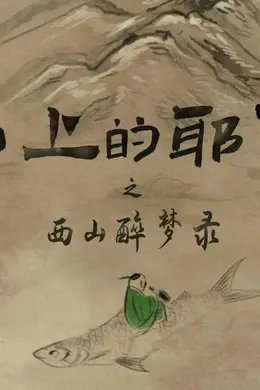 上的耶
之
西山醉梦录